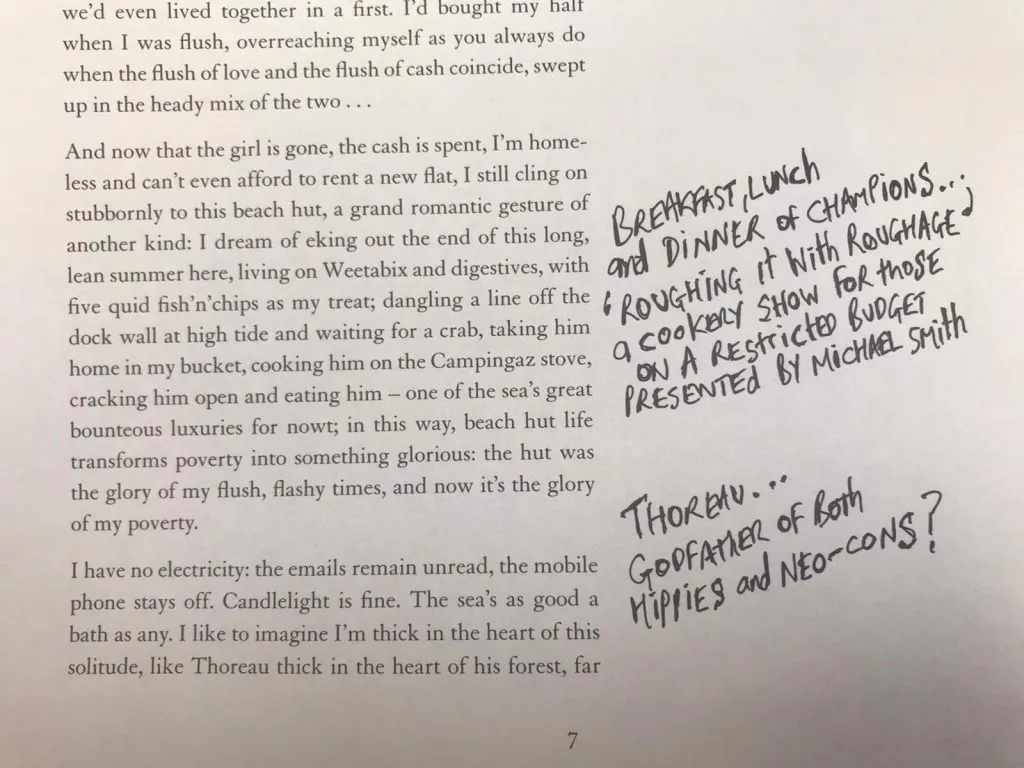 we'd even lived together in a first. I'd bought my half
when I was flush, overreaching myself as you always do
when the flush of love and the flush of cash coincide, swept
up in the heady mix of the two . . .
And now that the girl is gone, the cash is spent, I'm home-
less and can't even afford to rent a new flat, I still cling on
stubbornly to this beach hut, a grand romantic gesture of
another kind: I dream of eking out the end of this long,
lean summer here, living on Weetabix and digestives, with
five quid fish'n'chips as my treat; dangling a line off the
dock wall at high tide and waiting for a crab, taking him
home in my bucket, cooking him on the Campingaz stove,
cracking him open and eating him – one of the sea's great
bounteous luxuries for nowt; in this way, beach hut life
transforms poverty into something glorious: the hut was
the glory of my flush, flashy times, and now it's the glory
of my poverty.
I have no electricity: the emails remain unread, the mobile
phone stays off. Candlelight is fine. The sea's as good a
bath as any. I like to imagine I'm thick in the heart of this
solitude, like Thoreau thick in the heart of his forest, far
7
BREAKFAST, LUNCH
and DINNER of CHAMPIONS...
'ROUGHING it With ROUGHAGE'
a COOKERY SHOW FOR those
ON A REStricted BUDGET
PRESENTEd BY MICHAEL SMith
THOREAU...
GODFATHER OF Both
HIPPIES and NEO-CONS?